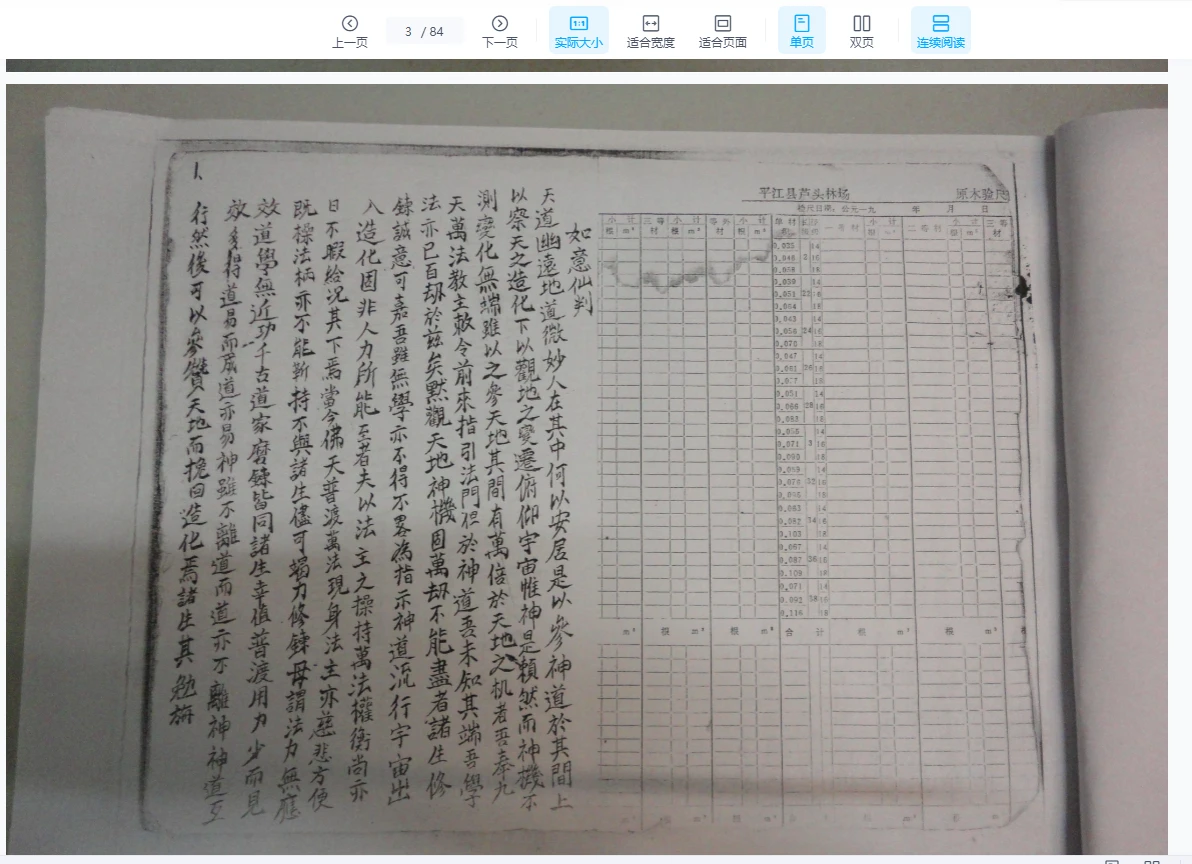 上一页
3 / 84
下一页
1:1
实际大小
适合宽度
适合页面
单页
双页
连续阅读
平江县芦头林场
原木验尺
检尺日期：公元一九 年 月 日
小计 三等材 小计 等外材 小计 单材积 一等材 小计 二等材 小计 三等材
根 m³ 根 m³ 根 m³ 根 m³
0.035 14
0.046 16
0.058 18
0.039 14
0.051 22 16
0.064 18
0.043 14
0.056 24 16
0.070 18
0.047 14
0.061 26 16
0.077 18
0.051 14
0.066 28 16
0.083 18
0.055 14
0.071 16
0.090 18
0.059 14
0.076 32 16
18
0.063 14
0.082 34 16
0.103 18
0.067 14
0.087 36 16
0.109 18
0.071 14
0.092 38 16
0.116 18
m³ 根 m³ 根 m³ 合计 根 m³ 根 m³ 根
如意仙判
天道幽遠地道微妙人在其中何以安居是以參神道於其間上
以察天之造化下以觀地之變遷俯仰宇宙惟神是賴然而神機不
測變化無端雖以之參天地其間有萬倍於天地之机者吾奉九
天萬法教主敕令前來指引法門但於神道吾未知其端吾學
法亦已百劫於茲矣默觀天地神機固萬劫不能盡者諸生修
錬誠意可嘉吾雖無學亦不得不畧為指示神道流行宇宙出
入造化固非人力所能至者夫以法主之操持萬法權衡尚亦
日不暇給况其下焉當今佛天普渡萬法現身法主亦慈悲方便
既操法柄亦不能靳持不與諸生儘可竭力修錬毋謂法力無應
效道學無近功千古道家磨錬皆同諸生幸值普渡用力少而見
效多得道易而成道亦易神雖不離道而道亦不離神神道互
行然後可以參贊天地而挽回造化焉諸生其勉旃
1、